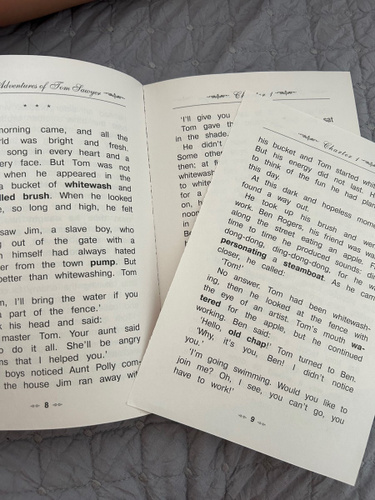 Adventures of Tom Sawyer
* * *
morning came, and all the
was bright and fresh,
song in every heart and a
face. But Tom was not
when he appeared in the
a bucket of whitewash and
brush. When he looked
so long and high, he felt
saw Jim, a slave boy, who
out of the gate with a
himself had always hated
from the town pump. But
better than whitewashing. Tom
I'll bring the water if you
part of the fence.'
his head and said:
master Tom. Your aunt said
do it all. She'll be angry
that I helped you.'
boys noticed Aunt Polly
the house Jim ran away
8
'I'll give you
sat
Tom gave
in the shade.
He didn't
then; at
Some other
whitewash
to
for a
on,
in
Chapter 1
his bucket and Tom started
But his energy did not last.
to think of the fun he had
this day.
At this dark and hopeless
found a way out.
He took up his brush and went
work. Ben Rogers, his friend was
along the street eating an apple.
time to time he produced sounds:
dong-dong, ding-dong-dong, for he
personating a steamboat. As he came
closer, he called:
'Tom!'
No answer. Tom had been whitewash-
ing, then he looked at the fence with
the eye of an artist. Tom's mouth wa-
tered for the apple, but he continued
working. Ben said:
'Hello, old chap!' Tom turned to Ben.
'Why, it's you, Ben! I didn't notice
you.'
'I'm going swimming. Would you like to
join me? Oh, I see, you can't go, you
have to work!'
9